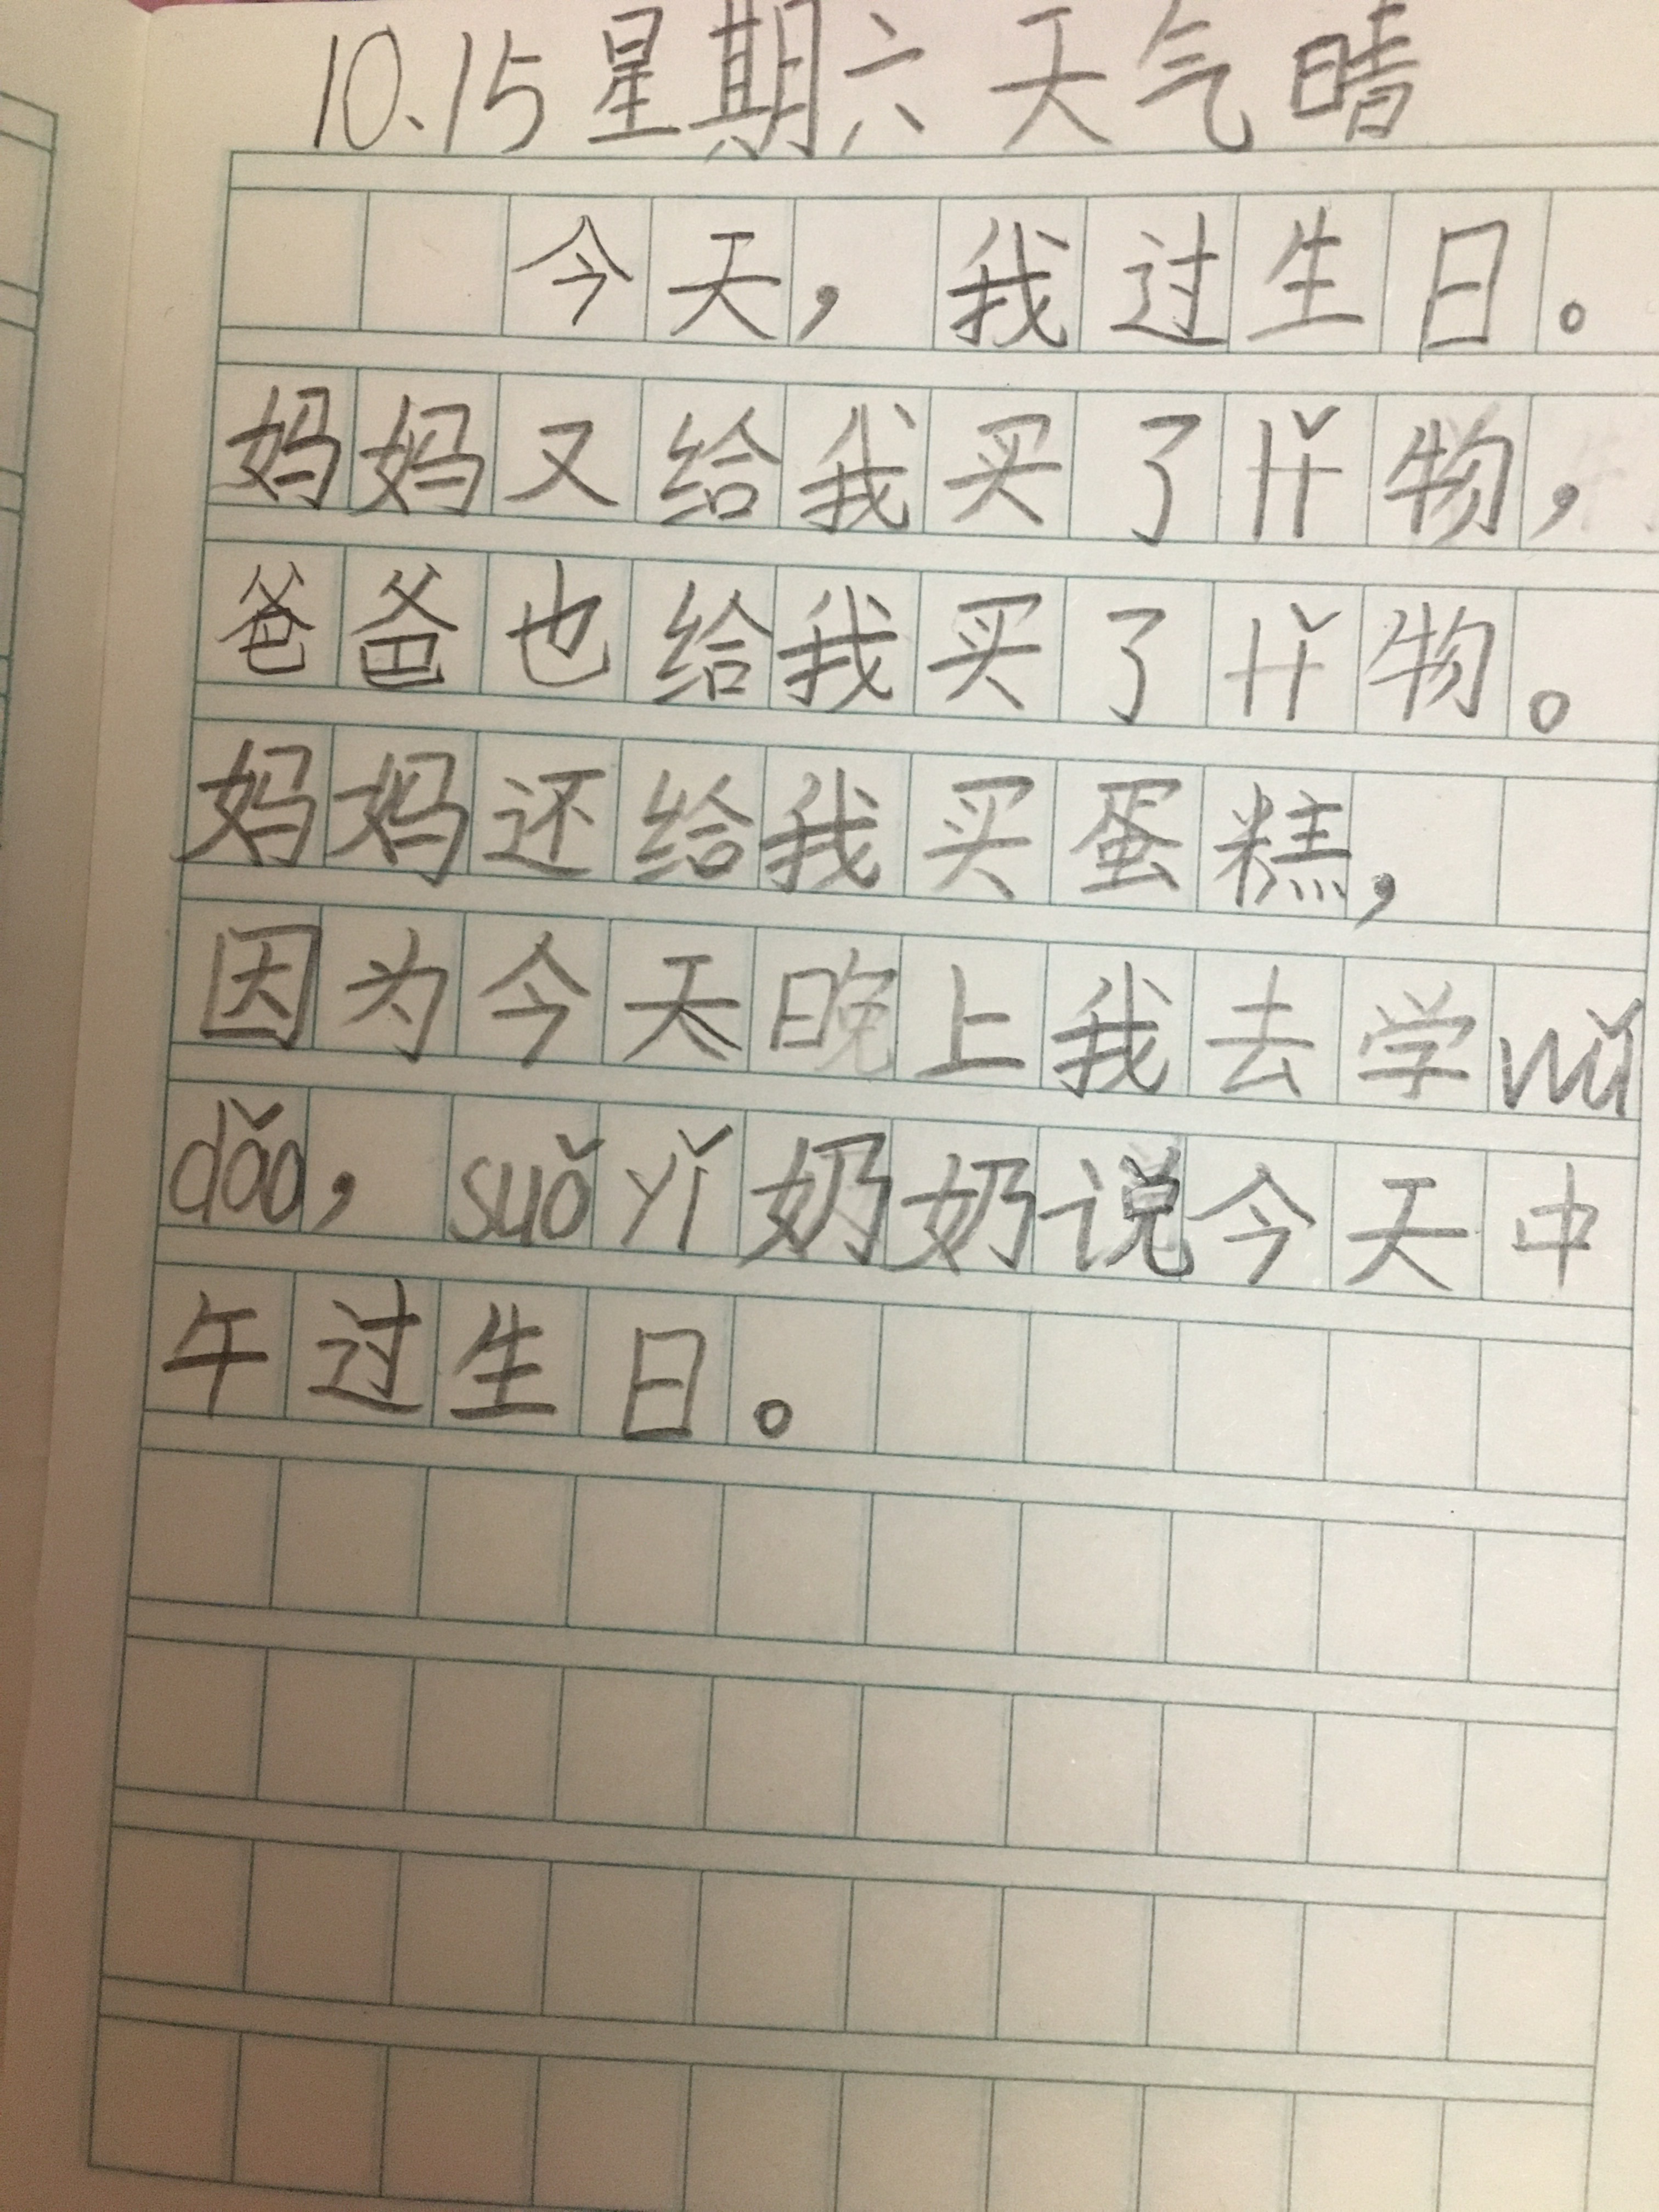 10.15星期六 天气晴
今天，我过生日。
妈妈又给我买了lǐ物，
爸爸也给我买了lǐ物。
妈妈还给我买蛋糕，
因为今天晚上我去学wǔ
dǎo，suǒ yǐ奶奶说今天中
午过生日。